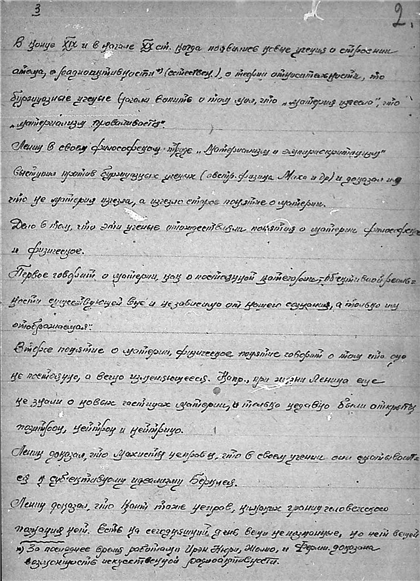 3
2.
В конце XIX и в начале XX ст. когда появились новые учения о строении
атома, о радиоактивности*) (естествен.), о теории относительности, то
буржуазные ученые начали вопить о том, что "материя исчезла", что
"материализм провалился".
Ленин в своем философском труде "Материализм и эмпириокритицизм"
выступил против буржуазных ученых (австр. физика Маха и др) и доказал им
что не материя исчезла, а исчезло старое понятие о материи.
Дело в том, что эти ученые отождествили понятия о материи философское
и физическое.
Первое говорит о материи, как о постоянной категории - объективной реальности
существующей вне и независимо от нашего сознания, а только им
отображаемая.
Второе понятие о материи, физическое понятие говорит о том что оно
не постоянно, а вечно изменяющееся. Напр., при жизни Ленина еще
не знали о новых частицах материи, а только недавно были открыты
позитрон, нейтрон и нейтрино.
Ленин доказал, что махисты неправы, что в своем учении они скатываются
к субъективному идеализму Беркли.
Ленин доказал, что Кант тоже неправ, никаких границ человеческого
познания нет. Есть на сегодняшний день вещи непознанные, но нет вещей
*) За последнее время работами Ирэн Кюри, Жолио, и Ферми доказана
возможность искусственной радиоактивности.